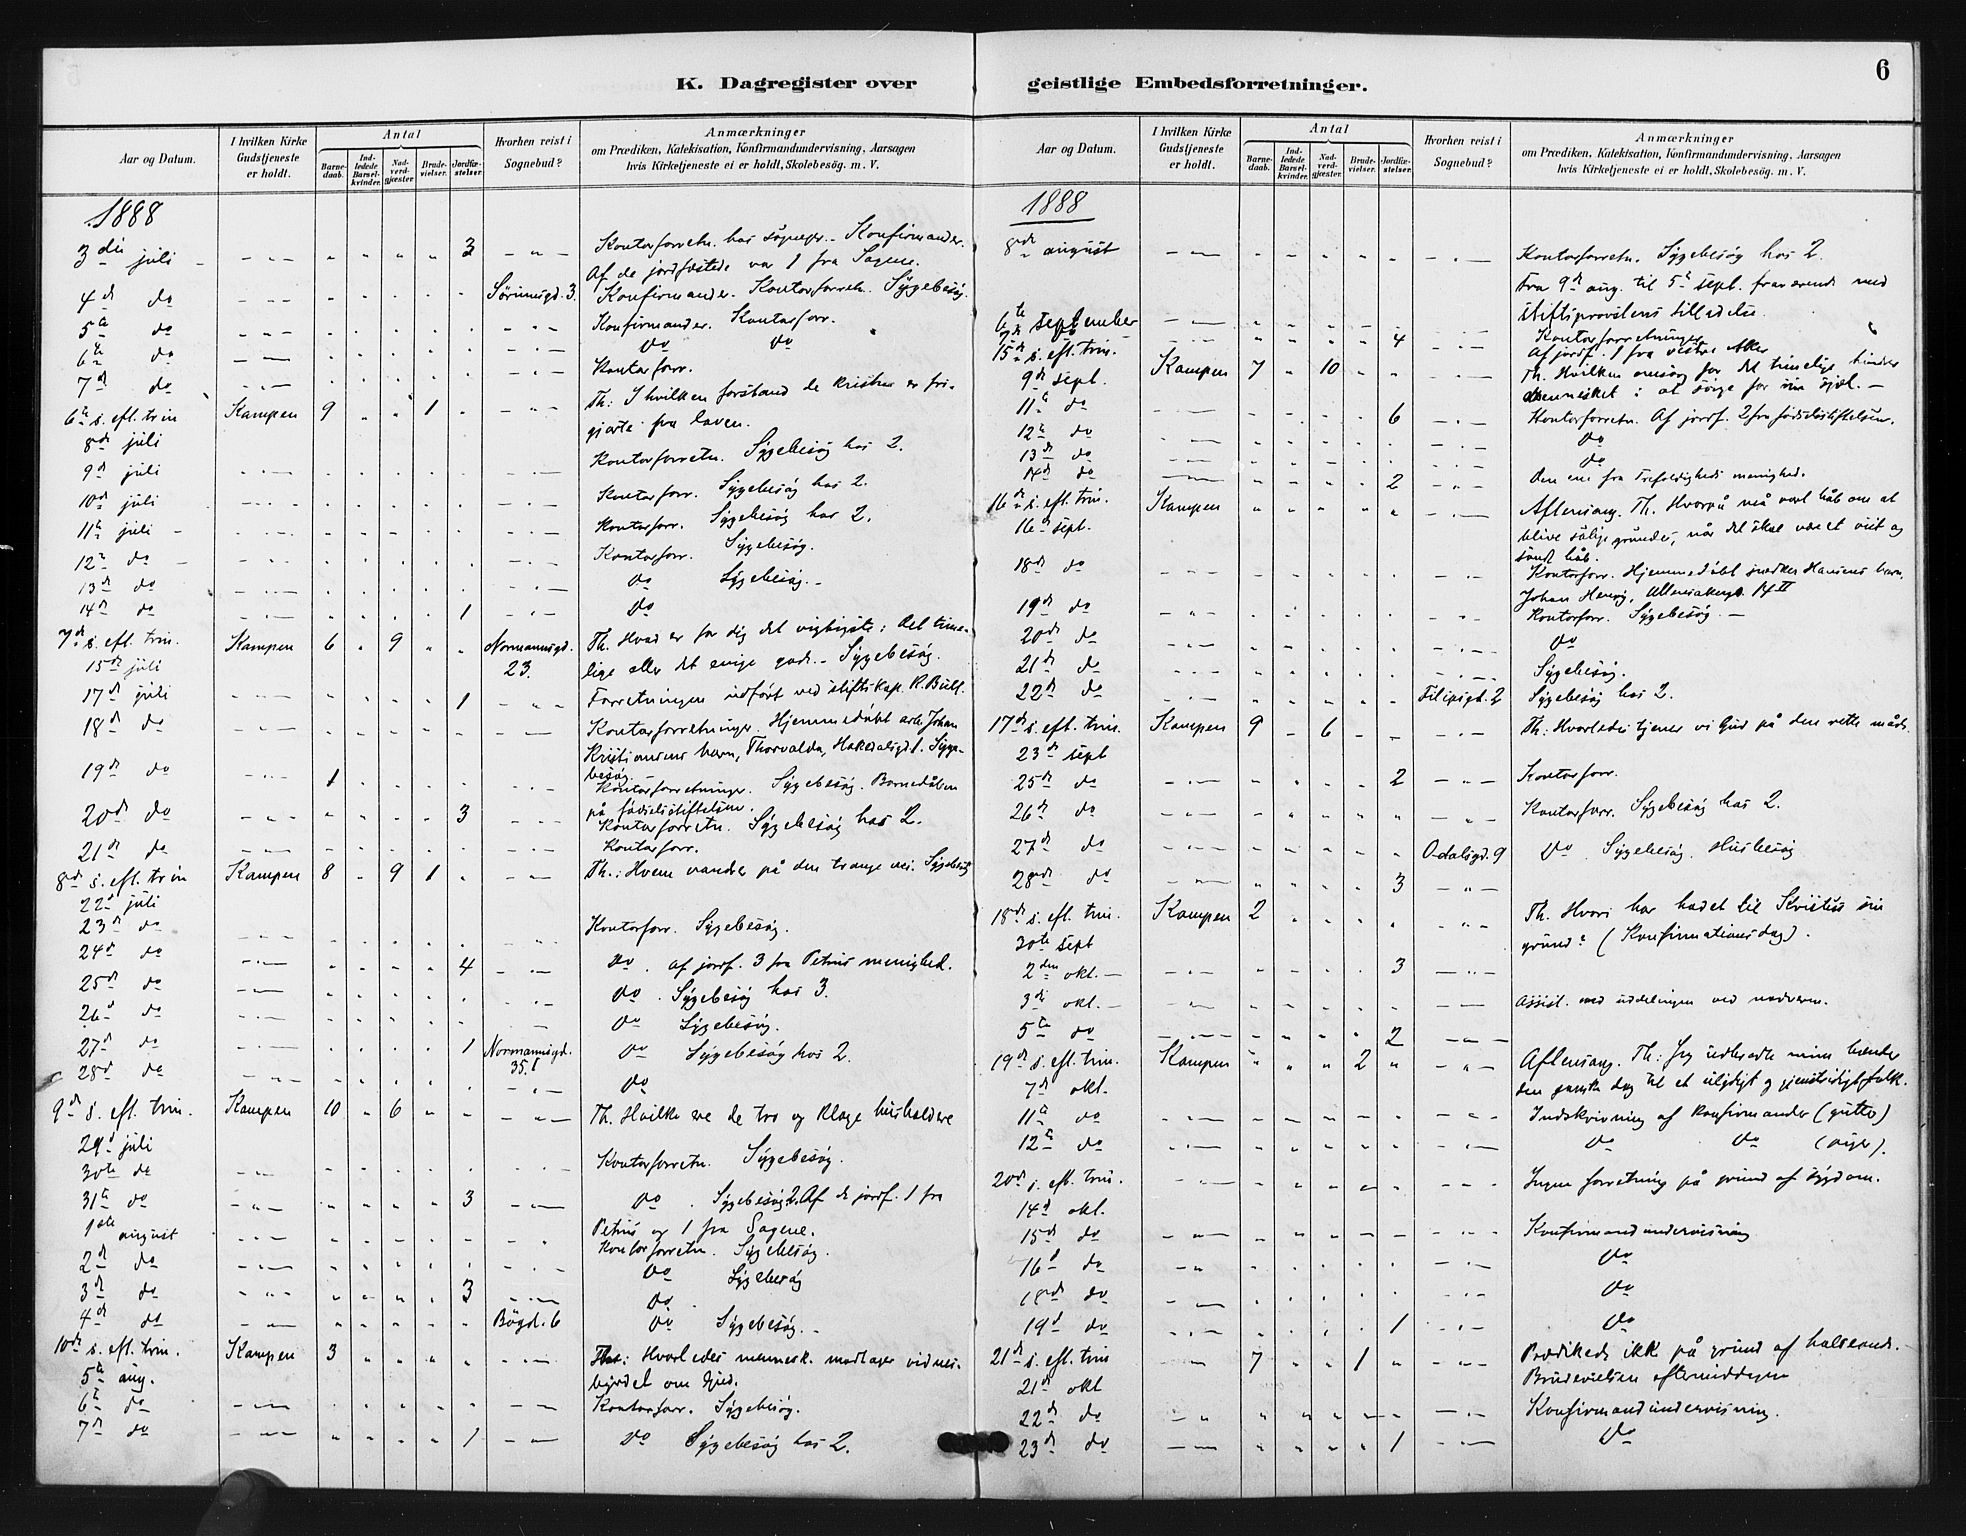 K. Dagregister over geistlige Embedsforretninger.
6
Aar og Datum.
I hvilken Kirke Gudstjeneste er holdt.
Antal
Barnedaab.
Indledede Barselkvinder.
Nadverdgjæster.
Brudevielser.
Jordfæstelser.
Hvorhen reist i Sognebud?
Anmærkninger
om Prædiken, Katekisation, Konfirmandundervisning, Aarsagen
hvis Kirketjeneste ei er holdt, Skolebesög. m. V.
1888
3die juli - " - " " " " 3 - " - Kontorforretn. hos sognepr. - Konfirmander.
Af de jordfæstede var 1 fra Sagene.
4d do - " - Sörumsgd. 3. Konfirmander. Kontorforretn. Sÿgebesög.
5te do - " - Konfirmander. Kontorforr.
6te do - " - do do
7d do - " - Kontorforr.
6te s. eft. trin Kampen 9 " " 1 " - " - Th: I hvilken forstand de kristne er fri-
8de juli gjorte fra loven.
9d juli - " - Kontorforretn. Sÿgebesög hos 2.
10d juli - " - Kontorforr. Sÿgebesög hos 2.
11te juli - " - Kontorforr. Sÿgebesög hos 2.
12te do - " - Kontorforr. Sÿgebesög.
13d do - " - do Sÿgebesög. -
14d do - " - 1 - " - do
7de s. eft. trin. Kampen 6 " 9 " " Normannsgd. 23. Th. Hvad er for dig det vigtigste: det time-
15de juli lige eller det evige gode. - Sÿgebesög.
17d juli - " - 1 - " - Forretningen udført ved stiftskap. R. Bull.
18d do - " - Kontorforretninger. Hjemmedöbt arb. Johan
Kristiansens barn, Thorvalda, Hakedalsgd. 1. Sÿge-
besög -
19d do - " - 1 - " - Kontorforretninger. Sÿgebesög. Barnedåben
på födselsstiftelsen.
20de do - " - 3 - " - Kontorforretn. Sÿgebesög hos 2.
21d do - " - Kontorforr.
8de s. eft. trin Kampen 8 " 9 1 " - " - Th.: Hvem vandrer på den trange vei. Sÿgebesög
22d juli
23d do - " - Kontorforr. Sÿgebesög.
24d do - " - 4 - " - do. af jordf. 3 fra Petrus menighed.
25d do - " - do. Sÿgebesög hos 3.
26d do - " - do Sÿgebesög.
27d do - " - 1 Normannsgd. 35. do Sÿgebesög hos 2.
28d do - " - do
9d s. eft. trin. Kampen 10 " 6 " " - " - Th. Hvilke ere de tro og kloge husholdere
29d juli
30te do - " - Kontorforretn. Sÿgebesög.
31te do - " - 3 - " - do. Sÿgebesög 2. Af de jordf. 1 fra
Petrus og 1 fra Sagene.
1ste august - " - Kontorforretn. Sÿgebesög.
2d do - " - do Sÿgebesög
3d do - " - 3 - " - do.
4d do - " - Bögd. 6 do Sÿgebesög. -
10de s. eft. trin. Kampen 3 " " " " - " - Th: Hvorledes mennesk. modtager vidnes-
5te aug. byrdet om Gud.
6te do - " - Kontorforr. Sÿgebesög.
7d do - " - 1 - " - do Sÿgebesög hos 2.
Aar og Datum.
I hvilken Kirke Gudstjeneste er holdt.
Antal
Barnedaab.
Indledede Barselkvinder.
Nadverdgjæster.
Brudevielser.
Jordfæstelser.
Hvorhen reist i Sognebud?
Anmærkninger
om Prædiken, Katekisation, Konfirmandundervisning, Aarsagen
hvis Kirketjeneste ei er holdt, Skolebesög. m. V.
1888
8de august - " - Kontorforretn. Sÿgebesög hos 2.
Fra 9d aug. til 5te sept. fraværende med
stiftsprovstens tilladelse.
6te september - " - Kontorforretninger
7d - " - 4 - " - Af jordf. 1 fra vestre Aker
15de s. eft. trin. Kampen 7 " 10 " " - " - Th. Hvilken omsorg for det timelige hindrer
9d sept. mennesket i at sörge for sin sjæl. -
11te do - " - 6 - " - Kontorforretn. Af jordf. 2 fra födselsstiftelsen.
12te do - " - do
13d do - " - do
14d do - " - 2 - " - Den ene fra Trefoldigheds menighed.
16de s. eft. trin. Kampen " " " " " - " - Aftensang. Th. Hvorpå må vort håb om at
16d sept. blive salige grundes, når det skal være et vist og
sandt håb.
18d do - " - Kontorforr. Hjemmedöbt snedker Hansens barn,
Johan Henrÿ,
19d do - " - Kontorforr. Sÿgebesög. -
20de do - " - do
21d do - " - Sÿgebesög.
22d do - " - Filipsgd. 2 Sÿgebesög hos 2.
17de s. eft. trin. Kampen 9 - 6 - - - " - Th: Hvorledes tjener vi Gud på den rette måde.
23d sept
25d do - " - 2 - " - Kontorforr.
26d do - " - Kontorforr. Sÿgebesög hos 2.
27d do - " - Odalsgd. 9 do. Sÿgebesög. Husbesög
28de do - " - 3 - " -
18de s. eft. trin. Kampen 2 " " " " - " - Th. Hvori har hadet til Kristus sin
30te sept grund? (Konfirmationsdag).
2den okt. - - " - 3 - " -
3d okt. - - " - Assist. med uddelingen ved nadveren.
5te do - " - 2 - " -
19de s. eft. trin. Kampen " " " 2 " - " - Aftensang. Th: Jeg udbredte mine hænder
7d okt. den ganske dag til et ulydigt og gjenstridigt folk.
11te do - " - Indskrivning af Konfirmander (gutter)
12te do - " - do do (piger).
20de s. eft. trin. - " - Ingen forretning på grund af sÿgdom.
14d okt.
15d do - " - Konfirmandundervisning
16d do - " - do
18de do - " - do
19d do - " - 1 - " - do
21de s. eft. trin - " - 7 " " 1 " - " - Prædikede ikke på grund af halsonde.
21d okt Brudevielsen eftermiddagen
22d do - " - Konfirmandundervisning.
23d do - " - 1 - " - do